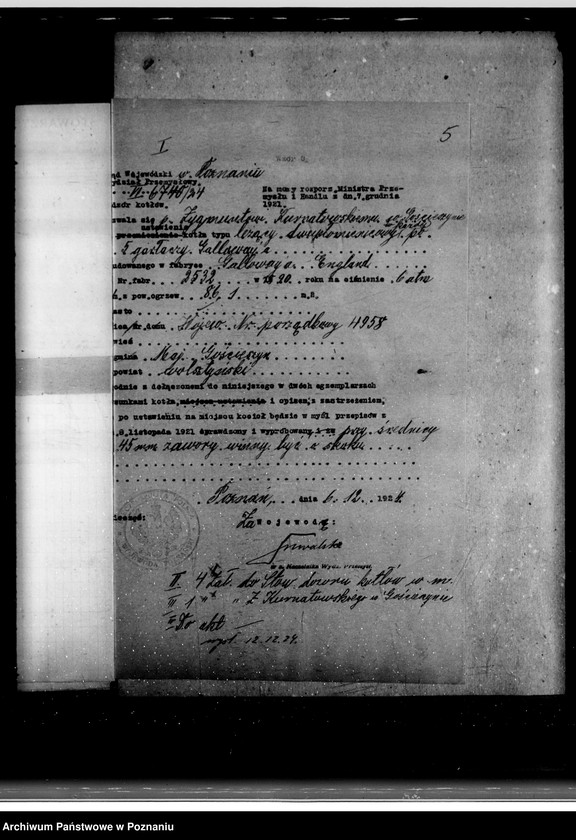 I
5
Wzór D.
ąd Wojewódzki w Poznaniu
ydział Przemysłowy.
VI 6740/24
dzór kotłów.
Na mocy rozporz. Ministra Prze-
mysłu i Handlu z dn. 7. grudnia
1921.
zwala się p. Zygmuntow. Kurnatowskiemu w Gościeszynie
ustawienie
przeniesienie kotła typu leżący dwupłomienicowy
5 gałłaczy Galloway'a
udowanego w fabryce Galloway a. England
Nr. fabr. 2532 w 1920. roku na ciśnienie 6 atm
z pow. ogrzew. 86,1 m.²
asto
ica, nr. domu Kojew. Nr. porządkowy 4958
wieś
gmina Maj. Gościeszyn
powiat wolsztyński
odnie z dołączonemi do niniejszego w dwóch egzemplarzach
sunkami kotła, miejsca ustawienia i opisem, z zastrzeżeniem,
po ustawieniu na miejscu kocioł będzie w myśl przepisów z
9. listopada 1921 sprawdzony i wypróbowany i średnicy
45 mm zawory winny być z
Poznań, dnia 6. 12. 1924.
ieczęć:
Za Wojewodę:
II. 4 zał. do Stow. dozoru kotłów w m.
III 1 " " Z Kurnatowskiego w Gościeszynie
IV Do akt
wysł. 12.12.24.
Archiwum Państwowe w Poznaniu